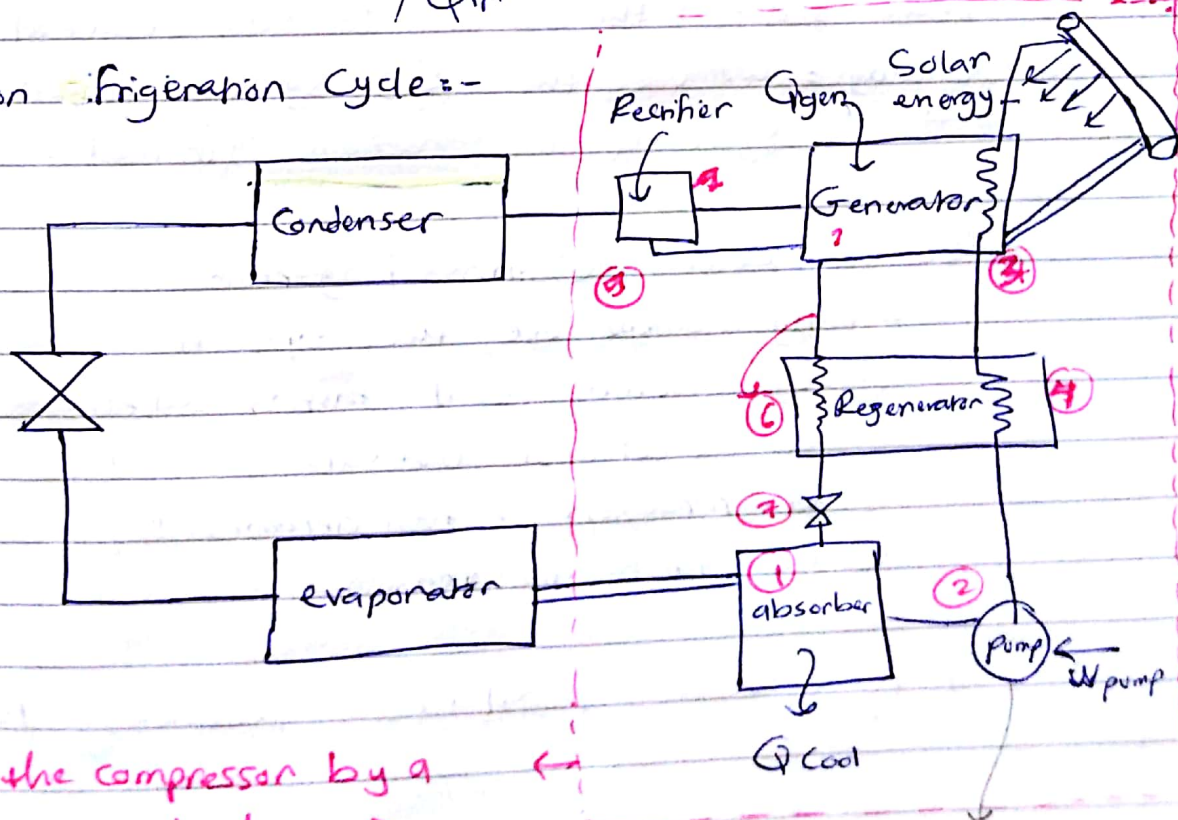 on frigeration Cycle:-
Rectifier
Qgen
Solar
energy
Condenser
Generator
3
5
Regenerator
4
6
7
evaporator
1
absorber
2
pump
Wpump
Qcool
the compressor by a